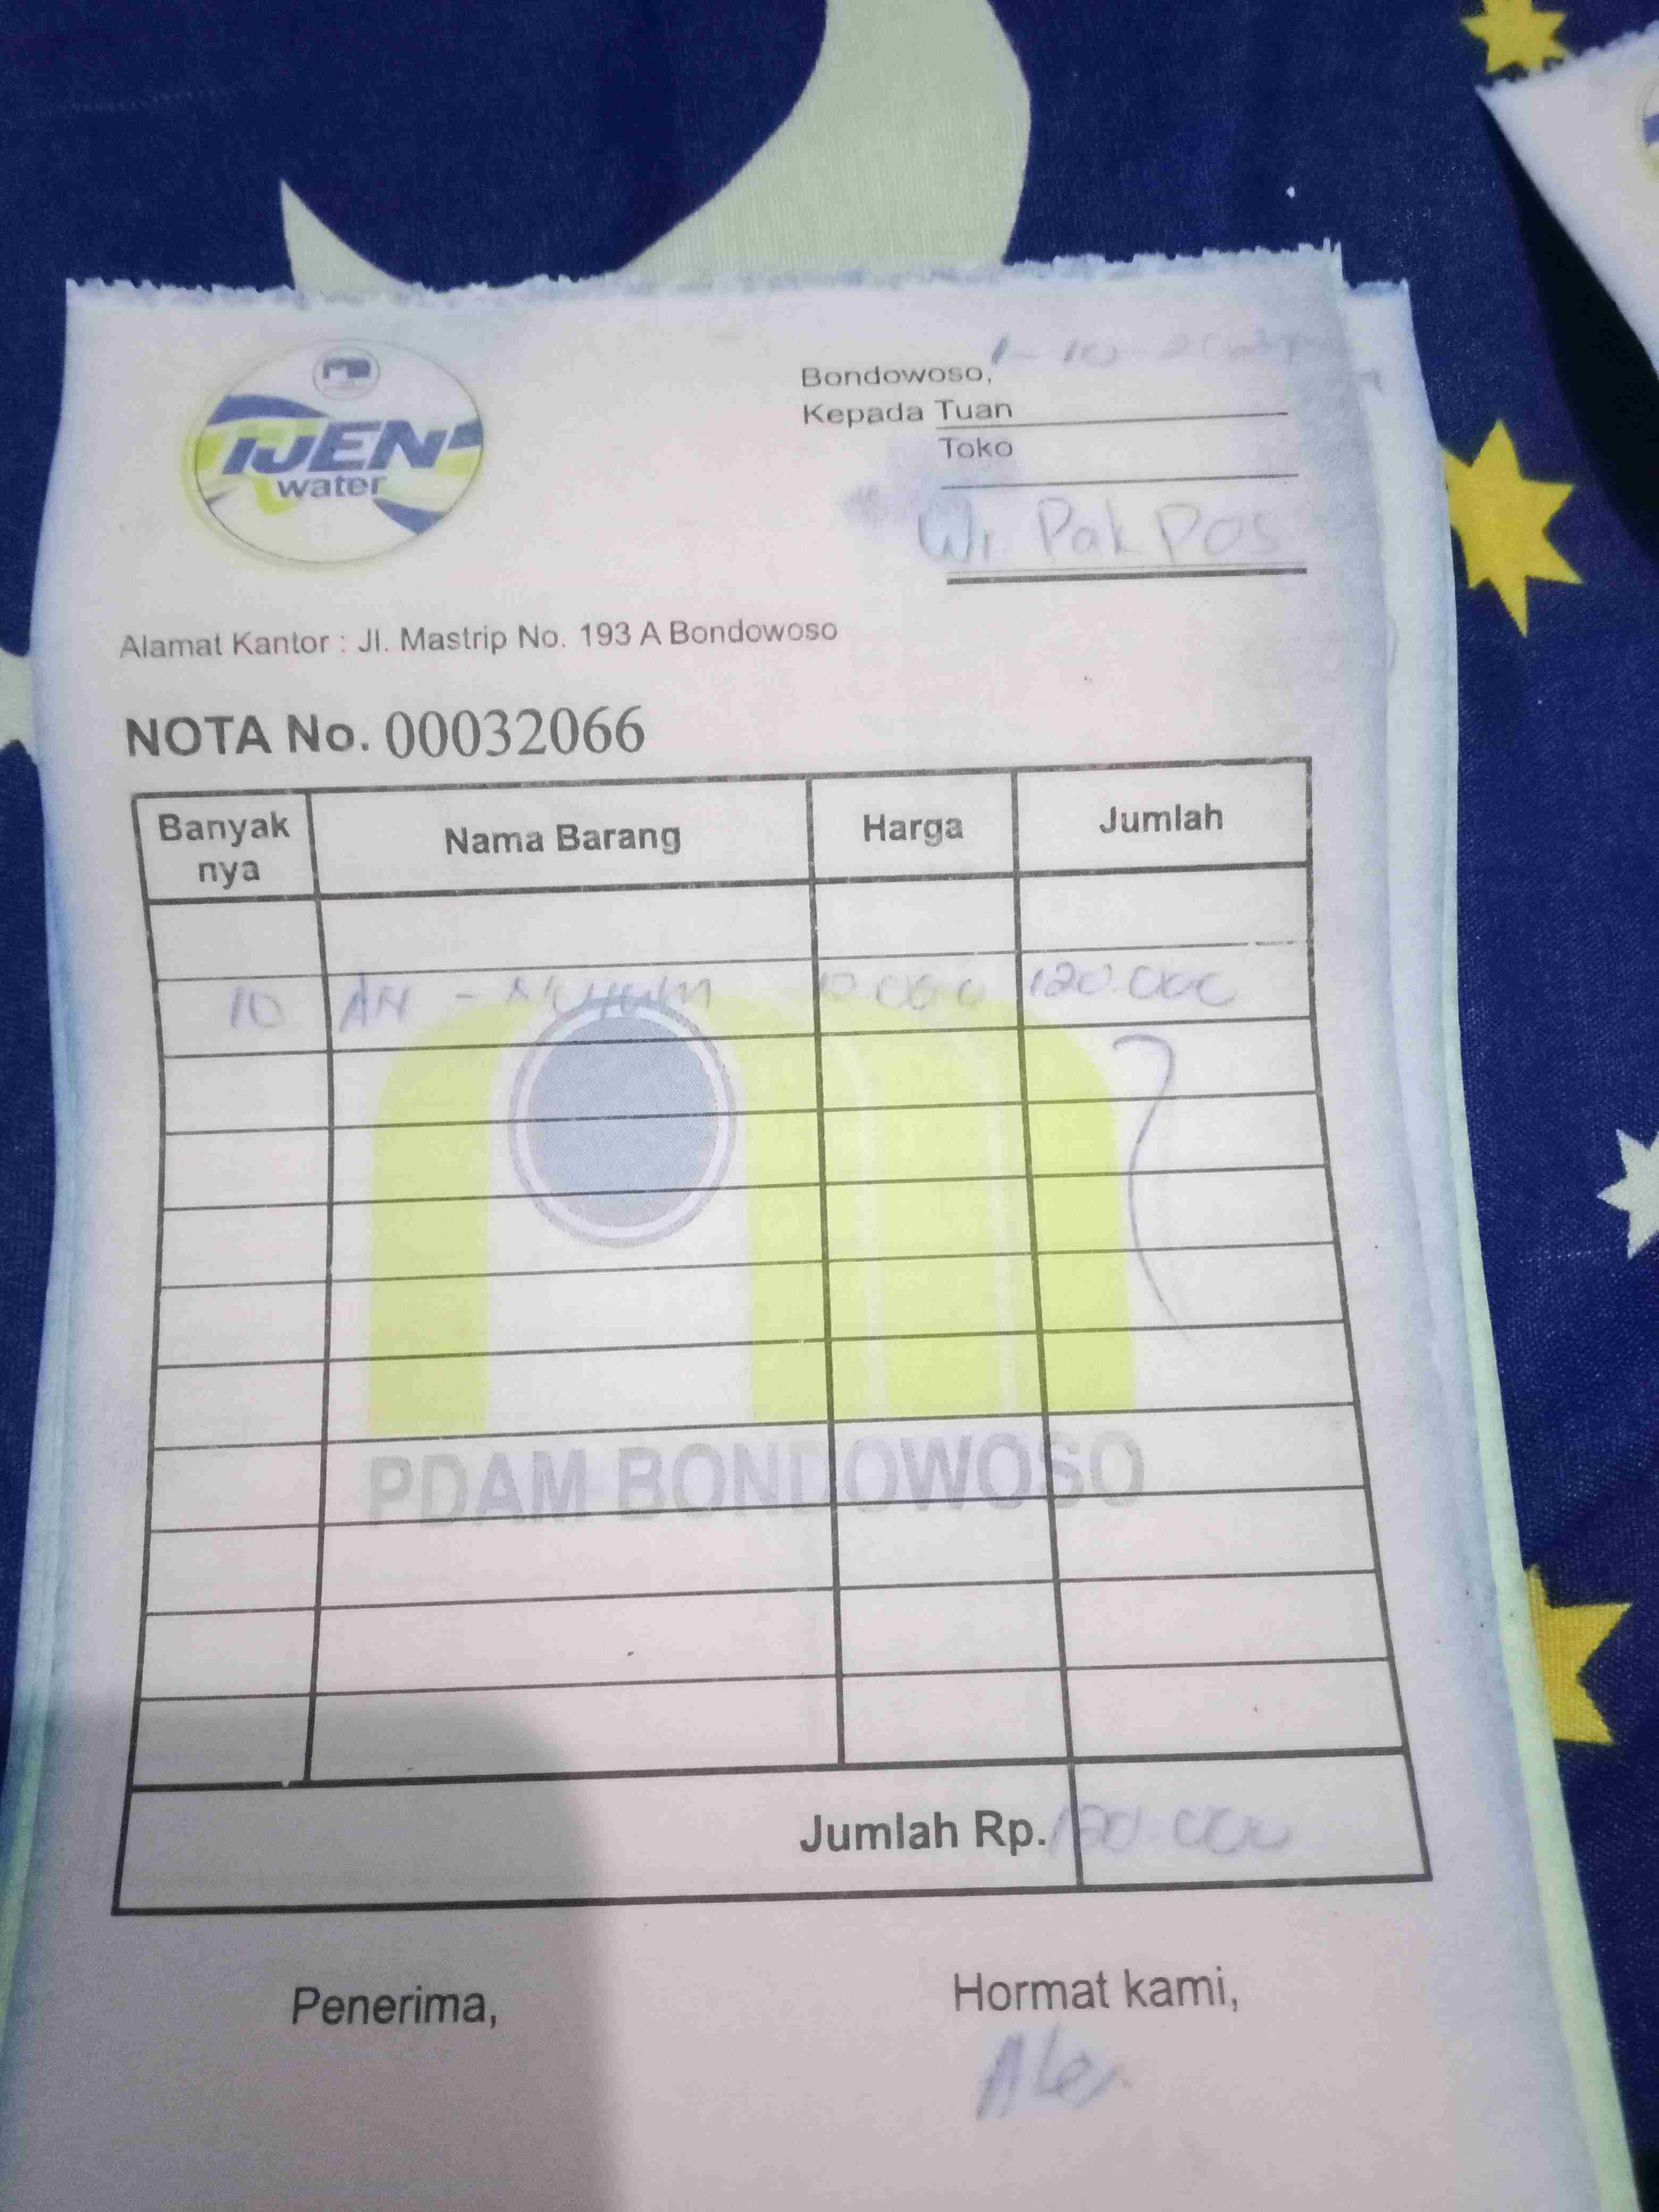 IJEN
water
Bondowoso, 1-10-2024
Kepada Tuan
Toko
Wr Pak Pos
Alamat Kantor : Jl. Mastrip No. 193 A Bondowoso
NOTA No. 00032066
Banyak nya Nama Barang Harga Jumlah
10 000 120.000
PDAM BONDOWOSO
Jumlah Rp. 120.000
Penerima, Hormat kami,